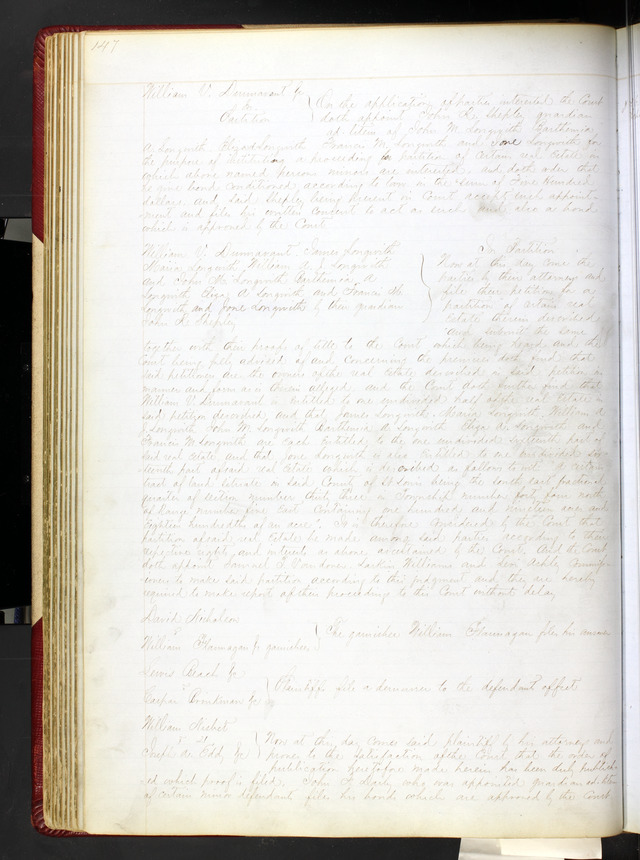 147
William V. Dunnavant &c
In
Partition
On the application of parties interested the Court
doth appoint John R. Shepley guardian
ad litem of John M. Longwith Parthenia
A Longwith Eliza Longwith Francis M. Longwith and Jone Longwith for
the purpose of instituting a proceeding in partition of certain real estate in
which above named persons minors are interested and doth order that
he give bond conditioned according to law in the sum of Five Hundred
dollars and said Shepley being present in Court accepts such appoint-
ment and files his written consent to act as such and also a bond
which is approved by the Court
William V. Dunnavant James Longwith
Maria Longwith William A. J. Longwith
and John M. Longwith Parthenia A
Longwith Eliza A Longwith and Francis M.
Longwith and Jone Longwith by their guardian
John R. Shepley
In Partition
Now at this day come the
parties by their attorney and
file their petition for a
partition of certain real
estate therein described
and submit the same
together with their proofs of title to the Court which being heard and the
Court being fully advised of and concerning the premises doth find that
said petitioners are the owners of the real estate described in said petition in
manner and form as is therein alleged and the Court doth further find that
William V. Dunnavant is entitled to one undivided half of the real estate in
said petition described and that James Longwith Maria Longwith William A
J Longwith John M. Longwith Parthenia A Longwith Eliza A. Longwith and
Francis M Longwith are each entitled to the one undivided sixteenth part of
said real estate and that Jone Longwith is also entitled to one undivided six-
teenth part of said real estate which is described as follows to wit A certain
tract of land situate in said County of St Louis being the south east fractional
quarter of section number thirty three in Township number forty four north
of Range number five East containing one hundred and nineteen acres and
Eighteen hundredths of an acre. It is therefore considered by the Court that
partition of said real estate be made among said parties according to their
respective rights and interest as above ascertained by the Court. And the Court
doth appoint Samuel Williams and Levi Ashly Commis-
sioners to make said partition according to their judgment and they are hereby
required to make report of their proceeding to the Court without delay
David Nicholson
v
William Flannagan Jr garnishee
The garnishee William Flannagan files his answer
Lewis Beach Jr
v
Caspar Brinkman &c
Plaintiff files a demurrer to the defendants offset
William Nisbet
v
Joseph A. Eddy &c
Now at this day come said plaintiff by his attorney and
prove to the satisfaction of the Court that the order of
publication heretofore made herein has been duly publish-
ed which proof is filed. John who was appointed guardian ad litem
of certain minor defendants files his bonds which are approved by the Court